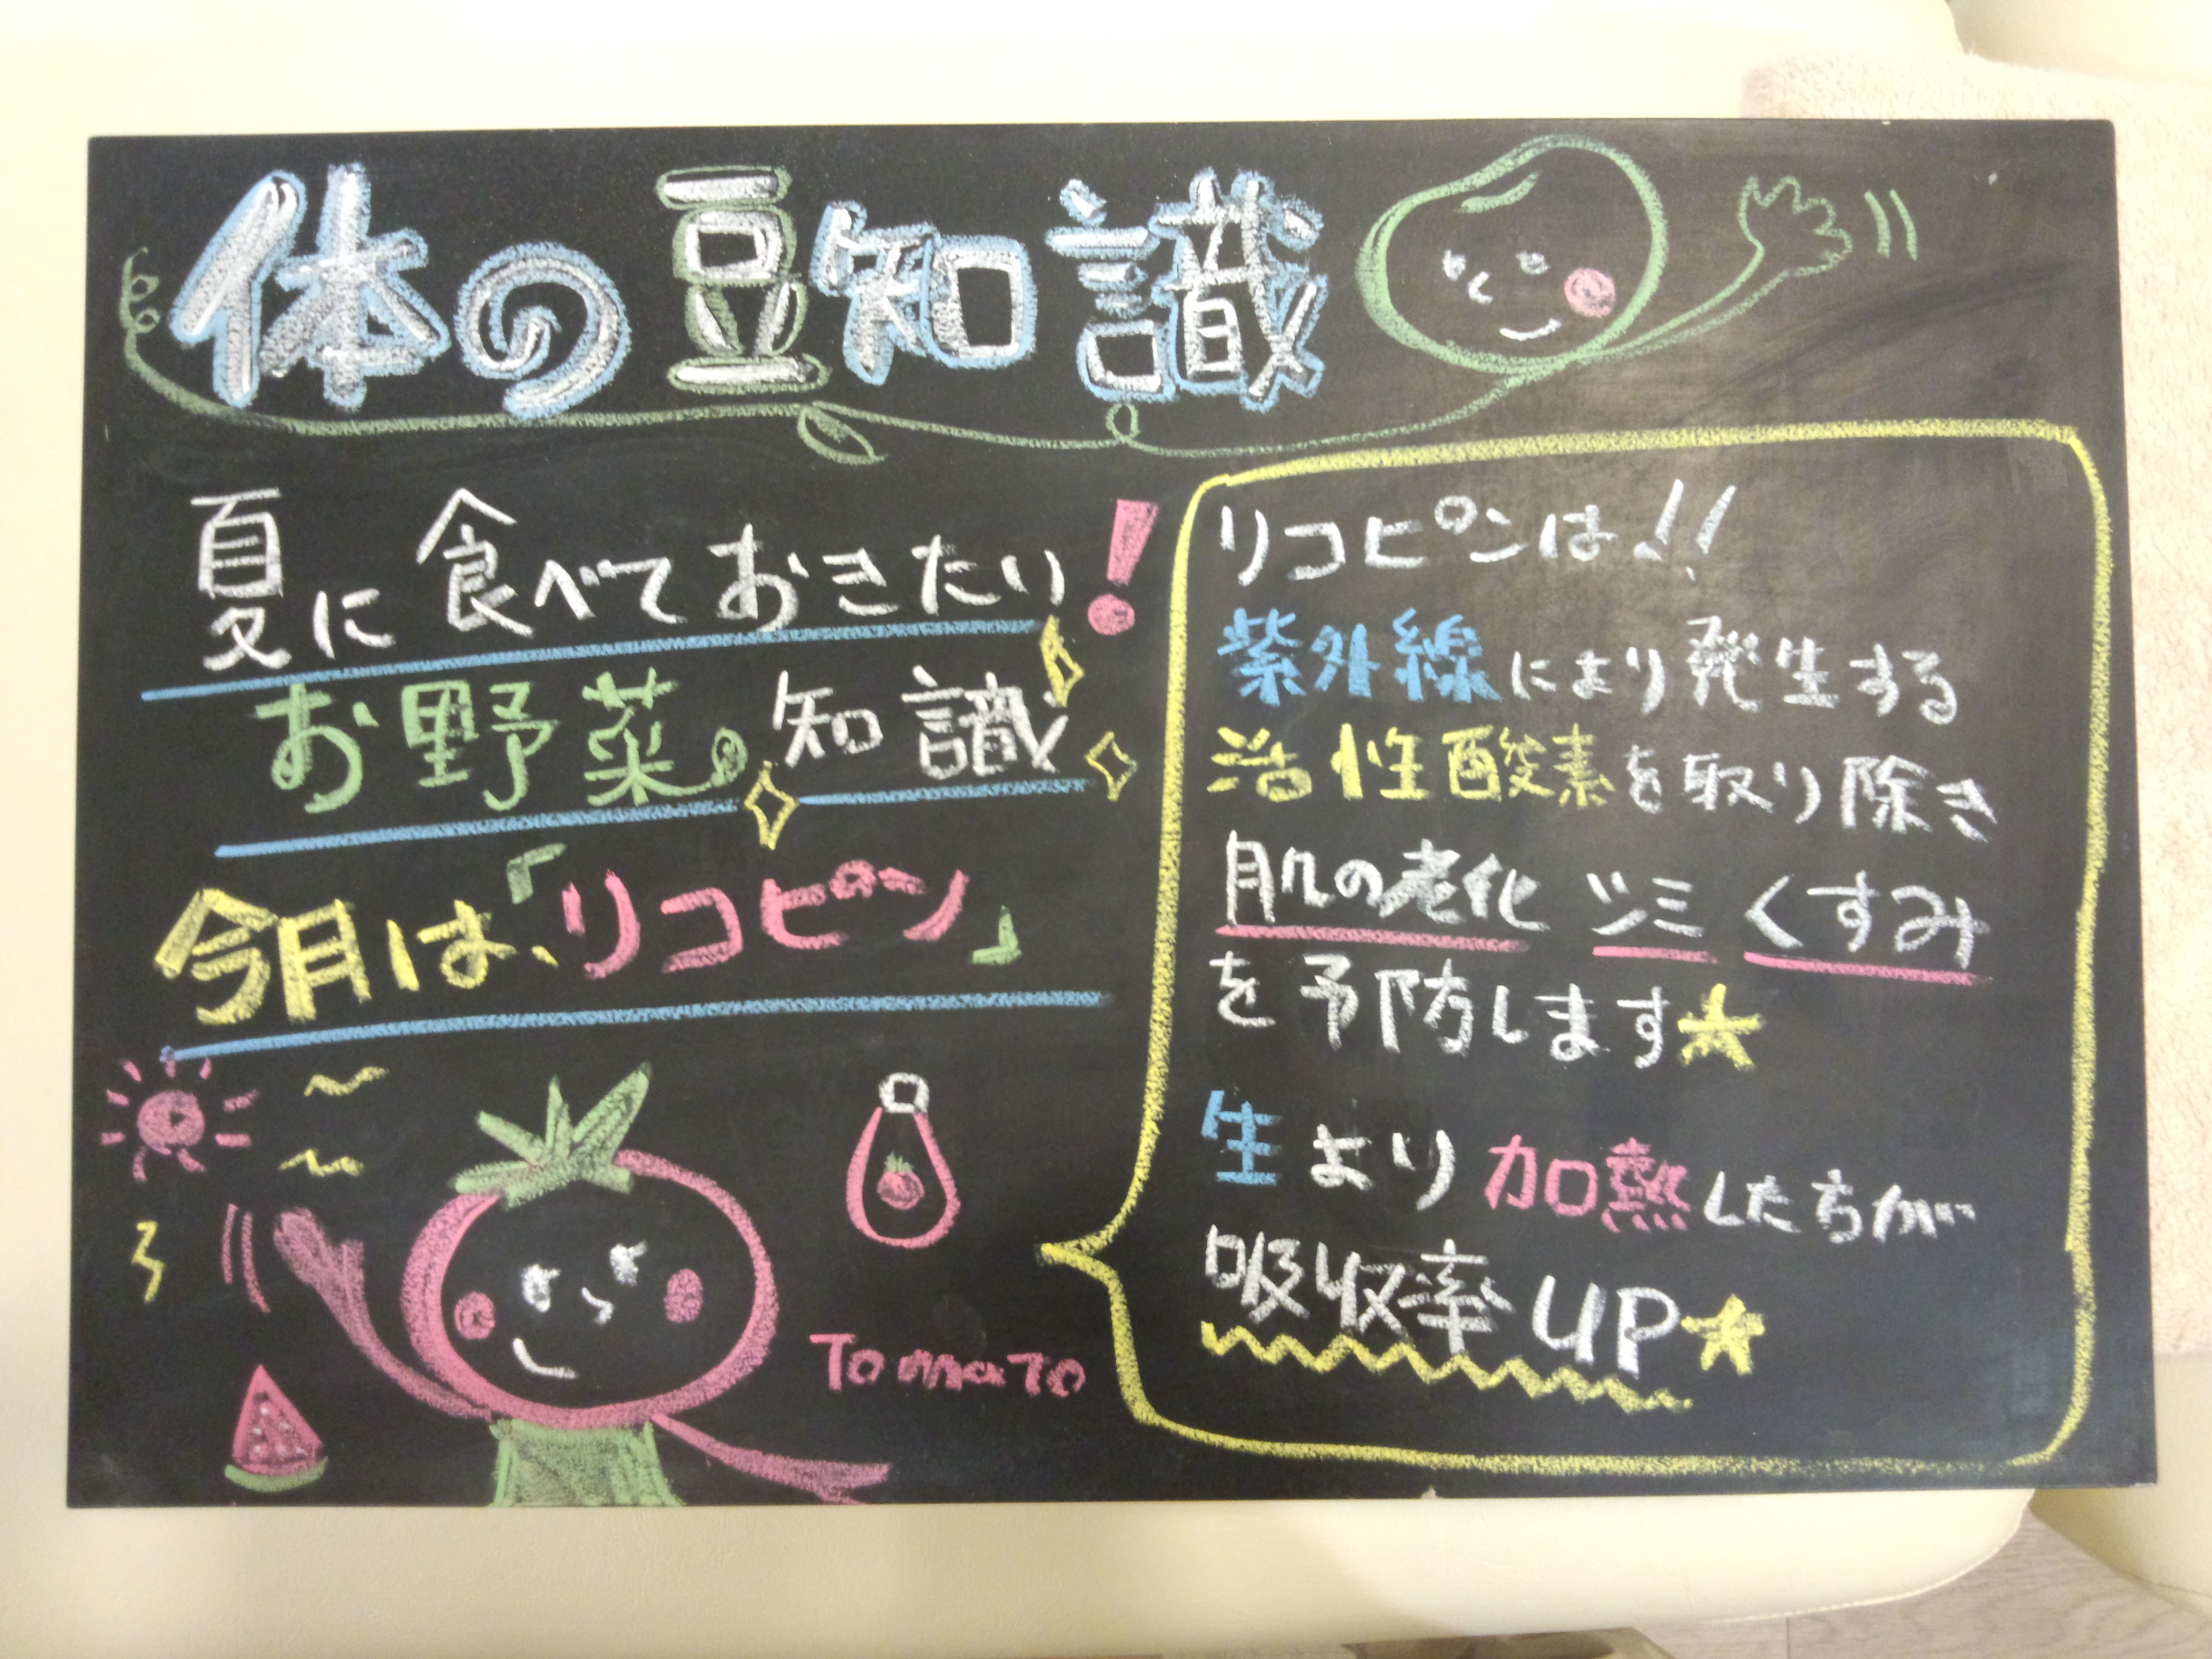 体の豆知識
夏に食べておきたい!
お野菜の知識
今月は、「リコピン」
Tomato
リコピンは!!
紫外線により発生する
活性酸素を取り除き
肌の老化 シミ くすみ
を予防します★
生より加熱したちが
吸収率UP★